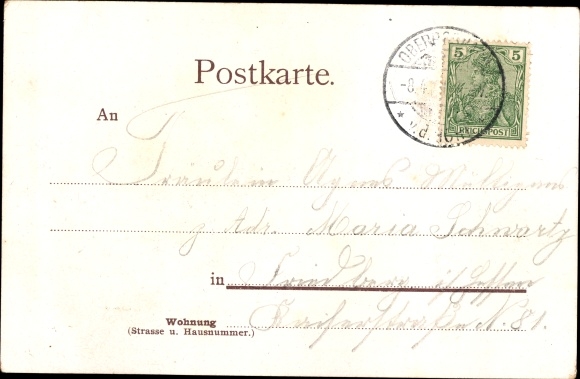 Postkarte.
An
Fräulein Agnes
z. Adr. Maria Schwartz
in Friedberg i/Hessen
Wohnung
(Strasse u. Hausnummer.)
Kaiserstraße N. 81.
5 5
REICHSPOST